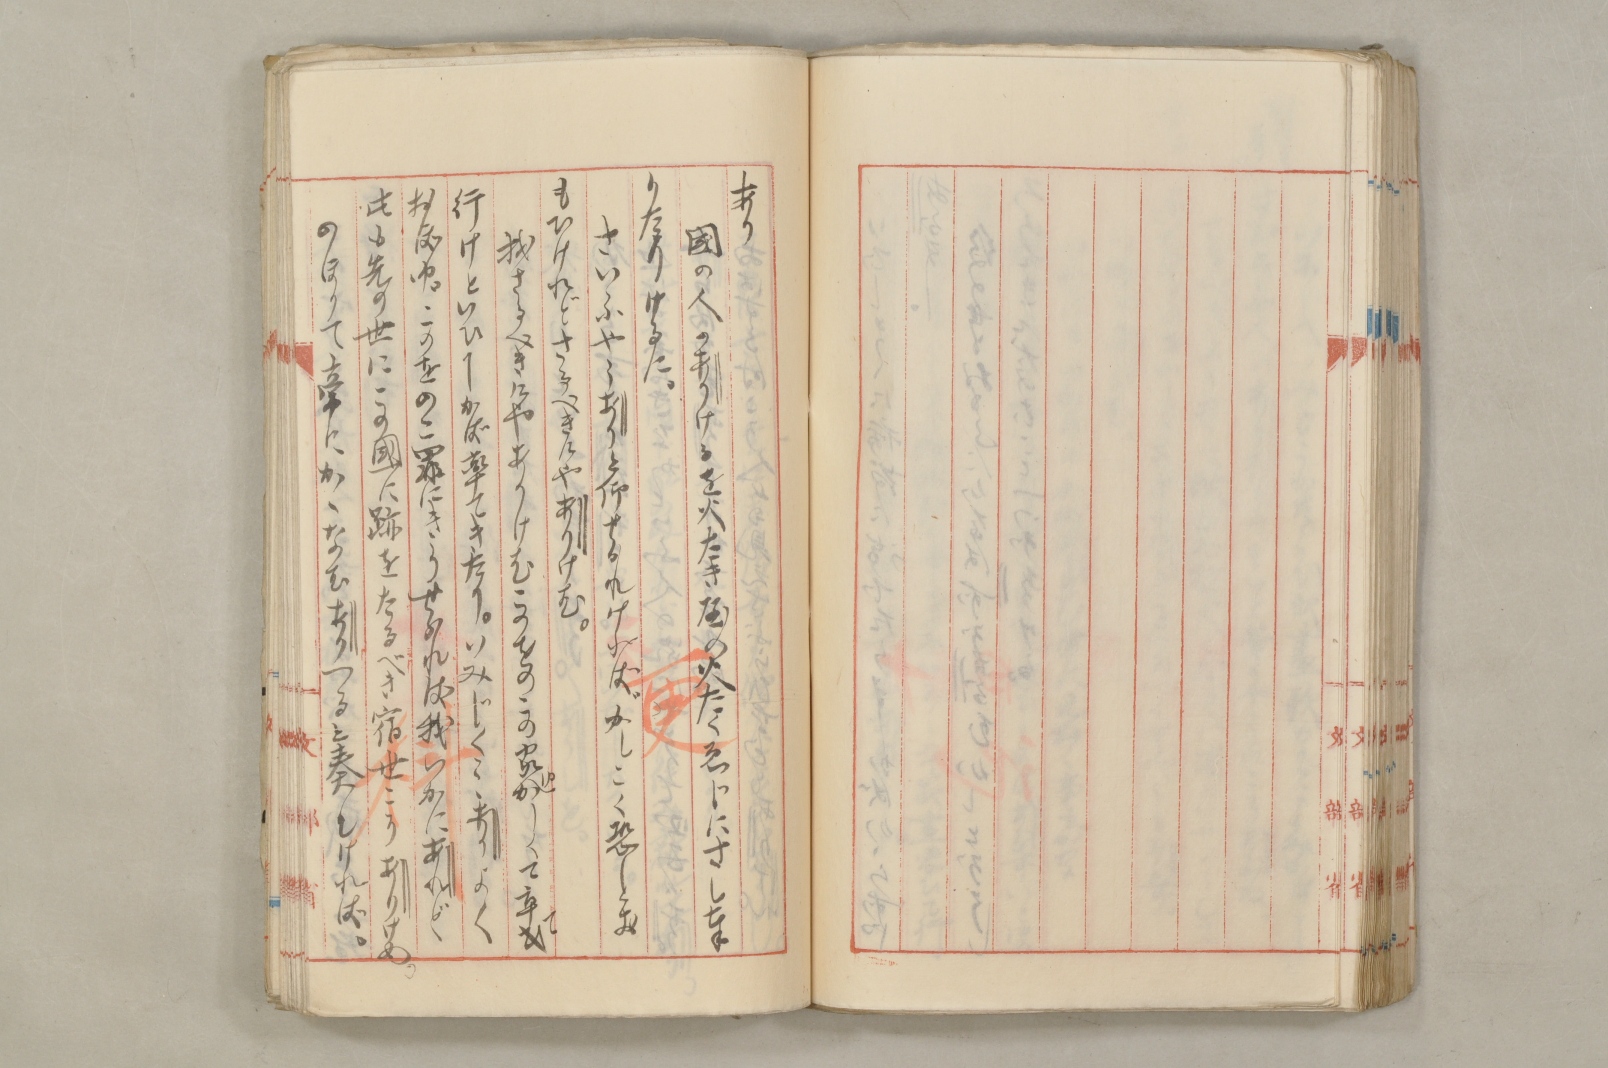 あり
國の人のありけるを火たき屋の火たく衛じにさし奉
りたりけるに。
さいふやうありと仰せられければかしこく恐しとお
もひけれどさるべきにやありけむ。
我さるべきにやありけむこのをのこの家ゆかしくて率て
行けといひしかば率てきたり。いみじくここありよく
おぼゆ。このをのこ罪しれうせられば我いかにあれど
此も先の世にこの國に跡をたるべき宿世こそありけめ。
のぼりて帝にかくなむありつると奏しければ。
文
部
省